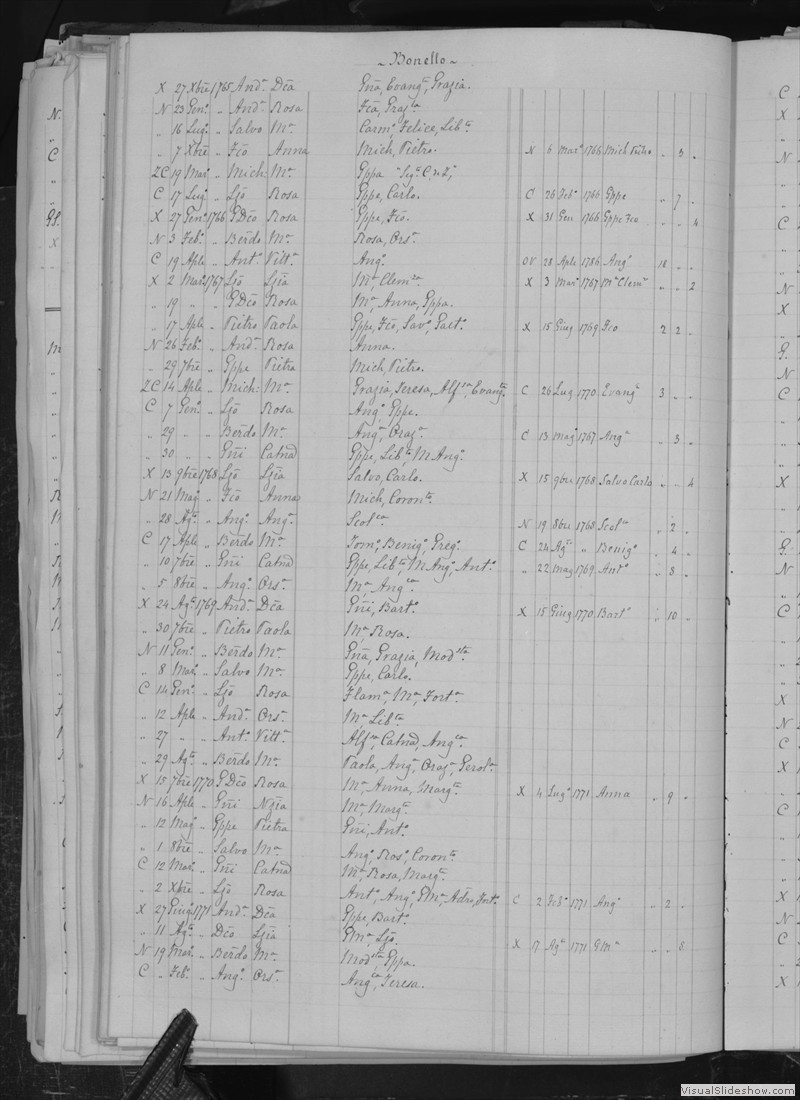 Bonello
X 27 Xbre 1765 Andª Dcã Gñã, Evangª, Grazia.
N 23 Genº „ Andª Rosa Fcã, Grazta
„ 16 Lugº „ Salvo Mª Carmª, Felice, Libta
„ 7 Xbre „ Fcõ Anna Mich, Pietro. N 6 Marº 1766 Mich Pietro „ 3 „
2C 19 Marº „ Mich: Mª Gppa
C 17 Lugº „ Ljõ Rosa Gppe, Carlo. C 26 Febº 1766 Gppe „ 7 „
X 27 Genº 1766 GDcõ Rosa Gppe, Fcõ. X 31 Gen 1766 Gppe Fco „ „ 4
N 3 Febº „ Berdo Mª Rosa, Orsª.
C 19 Aple „ Antº Vittª Angª OV 28 Aple 1786 Angª 18 „ „
X 2 Marº 1767 Ljõ Ljiã Mª, Clemza X 3 Marº 1767 Mª Clemª „ „ 2
„ 19 „ „ GDcõ Rosa Mª, Anna, Gppa.
„ 17 Aple „ Pietro Paola Gppe, Fcõ, Savº, Gaetº X 15 Giug 1769 Fco 2 2 „
N 26 Febº „ Andª Rosa Anna.
„ 29 7bre „ Gppe Pietra Mich, Pietro.
2C 14 Aple „ Mich: Mª Grazia, Teresa, Alfsa, Evangta C 26 Lug 1770 Evangª 3 „ „
C 7 Genº „ Ljõ Rosa Angº Gppe.
„ 29 „ „ Berdo Mª Angª, Orazª C 13 Mag 1767 Angª „ 3 „
„ 30 „ „ Gñi Catnã Gppe, Libta, M Angª
X 13 9bre 1768 Ljõ Ljiã Salvo, Carlo. X 15 9bre 1768 Salvo Carlo „ „ 4
N 21 Magº „ Fcõ Anna Mich, Coronta
„ 28 Agto „ Angº Angª Scolca N 19 8bre 1768 Scolca „ 2 „
C 17 Aple „ Berdo Mª Tomº, Benigº, Gregº C 24 Agto „ Benigº „ 4 „
„ 10 7bre „ Gñi Catnã Gppe, Libta, M Angª, Antº „ 22 Mag 1769 Antº „ 8 „
„ 5 8bre „ Angº Orsª Mª Angca
X 24 Agto 1769 Andª Dcã Gñi, Bartº X 15 Giug 1770 Bartº „ 10 „
„ 30 7bre „ Pietro Paola Mª Rosa.
N 11 Genº „ Berdo Mª Gñã, Grazia, Modsta
„ 8 Marº „ Salvo Mª Gppe, Carlo.
C 14 Genº „ Ljõ Rosa Flamª, Mª, Fortª
„ 12 Aple „ Andª Orsª Mª, Libta
„ 27 „ „ Antº Vittª Alfsa, Catnã, Angca
„ 29 Agto „ Berdo Mª Paola, Angª, Orazª, Gerolª
X 15 7bre 1770 GDcõ Rosa Mª, Anna, Margta X 4 Lugº 1771 Anna „ 9 „
N 16 Aple „ Gñi Nzia Mª, Margta
„ 12 Magº „ Gppe Pietra Gñi, Antº
„ 1 8bre „ Salvo Mª Angª, Rosª, Coronta
C 12 Marº „ Gñi Catnã Mª, Rosa, Margta
„ 2 Xbre „ Ljõ Rosa Antº, Angº, GMª, Adrº, Fortº C 2 Febº 1771 Angº „ 2 „
X 27 Giugº 1771 Andª Dcã Gppe Bartº
„ 11 Agto „ Dcõ Ljiã GMª Ljõ. X 17 Agº 1771 GMª „ „ 8
N 19 Marº „ Berdo Mª Modsta Gppa.
C „ Febº „ Angº Orsª Angca, Teresa.
VisualSlideshow.com